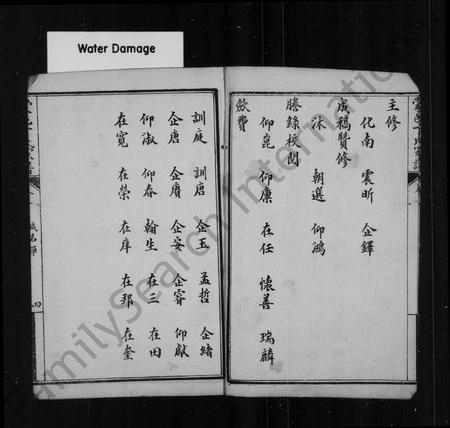 Water Damage
主修
化南 震昕 企鐸
成稿贊修
沐 朝選 仰鴻
謄錄校閱
仰崑 仰廉 在任 懷善 瑞麟
斂費
訓庭 訓唐 企玉 孟哲 企緒
企唐 企賡 企安 企睿 仰獻
仰淑 仰春 翰生 在三 在田
在寬 在榮 在庠 在邦 在奎
銜名
四
FamilySearch International